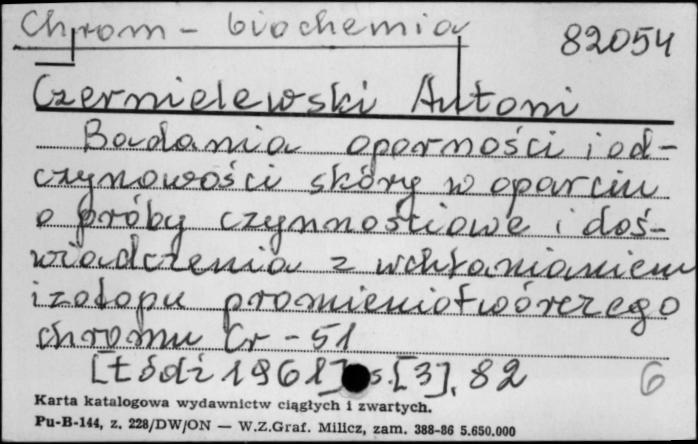 Chrom - biochemia
82054
Czernielewski Antoni
Badania oporności i od-
czynowości skóry w oparciu
o próby czynnościowe i doś-
wiadczenia z wchłanianiem
izotopu promieniotwórczego
chromu Cr - 51
[Łódź 1961] s. [3], 82
6
Karta katalogowa wydawnictw ciągłych i zwartych.
Pu-B-144, z. 228/DW/ON — W.Z.Graf. Milicz, zam. 388-86 5.650.000